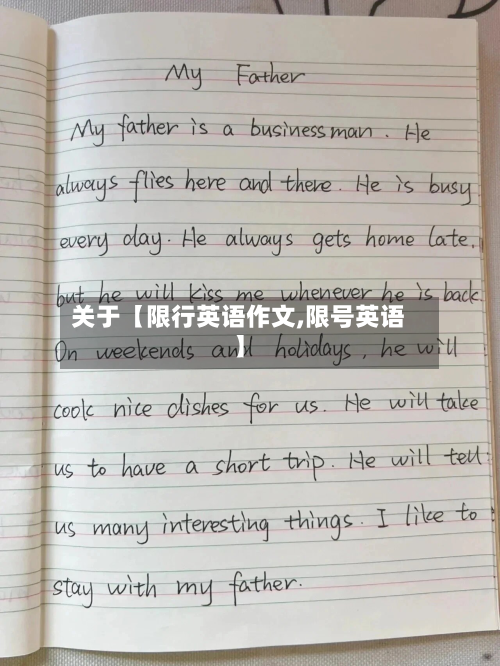 My Father
My father is a businessman. He
always flies here and there. He is busy
every day. He always gets home late,
but he will kiss me whenever he is back.
关于【限行英语作文,限号英语
】
On weekends and holidays, he will
cook nice dishes for us. He will take
us to have a short trip. He will tell
us many interesting things. I like to
stay with my father.